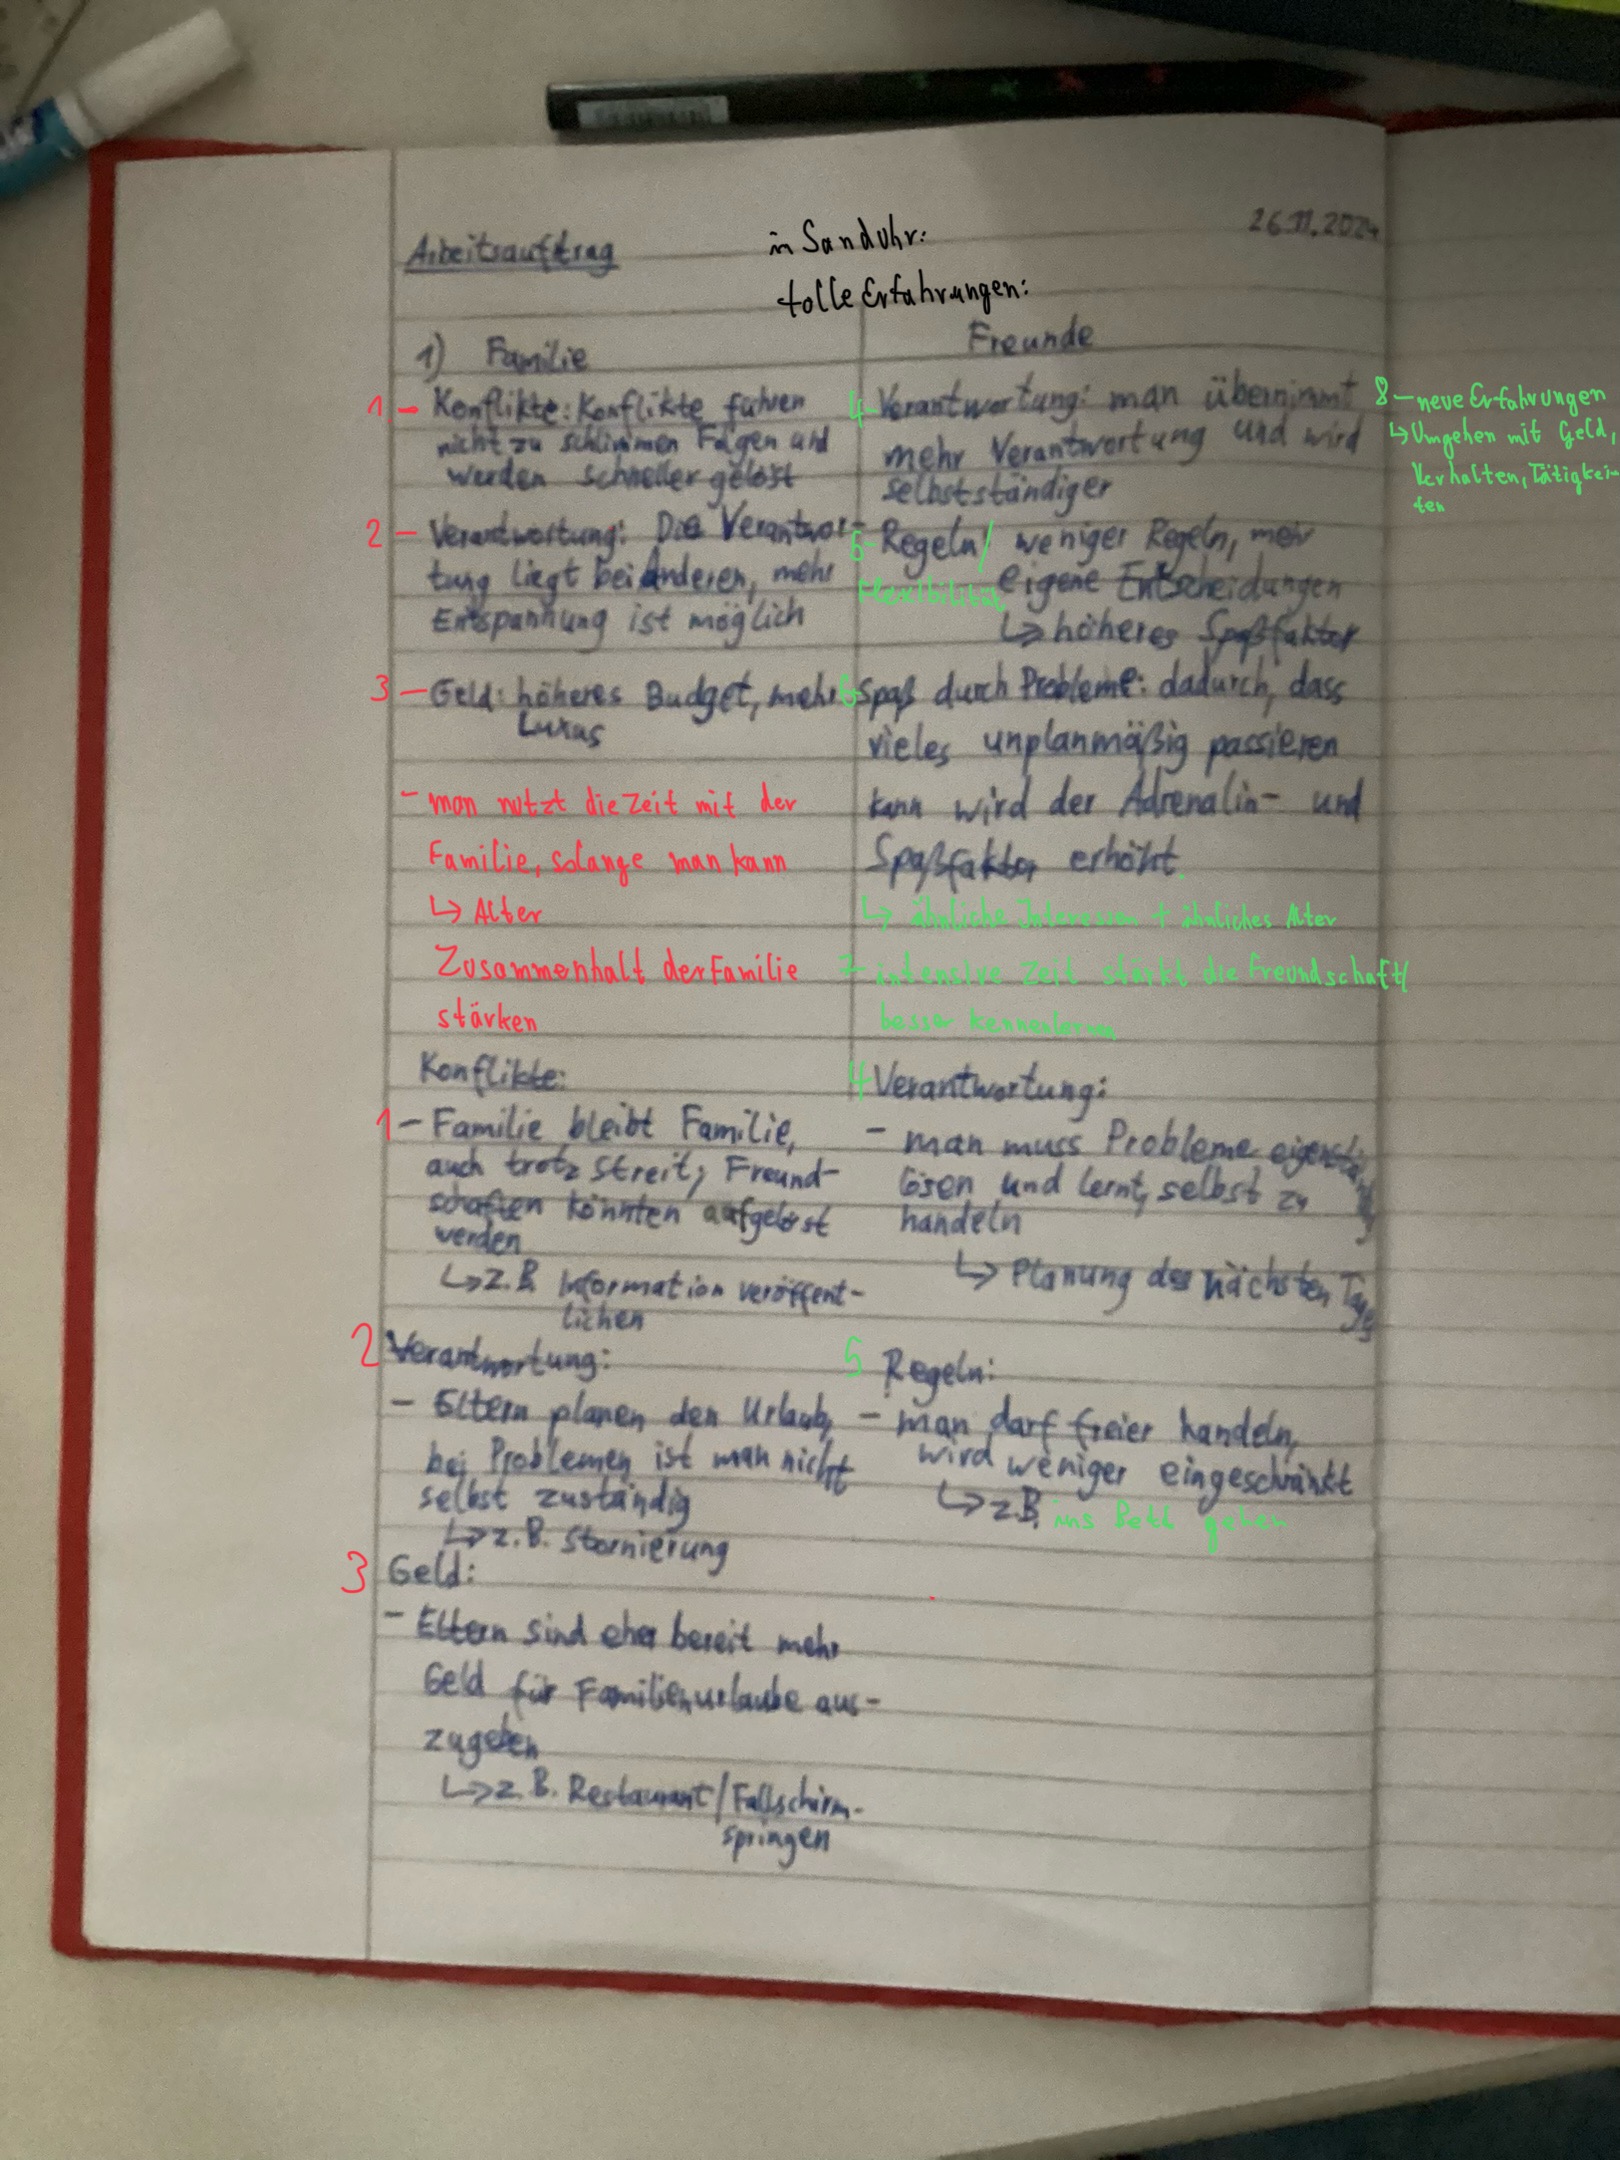 26.11.2024
Arbeitsauftrag
in Sanduhr:
tolle Erfahrungen:
1) Familie
1 - Konflikte: Konflikte führen
nicht zu schlimmen Folgen und
werden schneller gelöst
2 - Verantwortung: Die Verantwor-
tung liegt bei Anderen, mehr
Entspannung ist möglich
3 - Geld: höheres Budget, mehr
Luxus
- man nutzt die Zeit mit der
Familie, solange man kann
↳ Alter
Zusammenhalt der Familie
stärken
Konflikte:
1 - Familie bleibt Familie,
auch trotz Streit, Freund-
schaften könnten aufgelöst
werden
↳ z.B. Information veröffent-
lichen
2 Verantwortung:
- Eltern planen den Urlaub,
bei Problemen ist man nicht
selbst zuständig
↳ z.B. Stornierung
3 Geld:
- Eltern sind eher bereit mehr
Geld für Familienurlaube aus-
zugeben
↳ z.B. Restaurant/Fallschirm-
springen
Freunde
4 - Verantwortung: man übernimmt
mehr Verantwortung und wird
selbstständiger
5 - Regeln/ weniger Regeln, mehr
Flexibilität eigene Entscheidungen
↳ höheres Spaßfaktor
6 Spaß durch Probleme: dadurch, dass
vieles unplanmäßig passieren
kann wird der Adrenalin- und
Spaßfaktor erhöht.
↳ ähnliche Interessen + ähnliches Alter
7 - intensive Zeit stärkt die Freundschaft/
besser kennenlernen
4 Verantwortung:
- man muss Probleme eigenständig
lösen und lernt, selbst zu
handeln
↳ Planung des nächsten Tags
5 Regeln:
- man darf freier handeln,
wird weniger eingeschränkt
↳ z.B. ins Bett gehen
8 - neue Erfahrungen
↳ Umgehen mit Geld,
Verhalten, Tätigkei-
ten